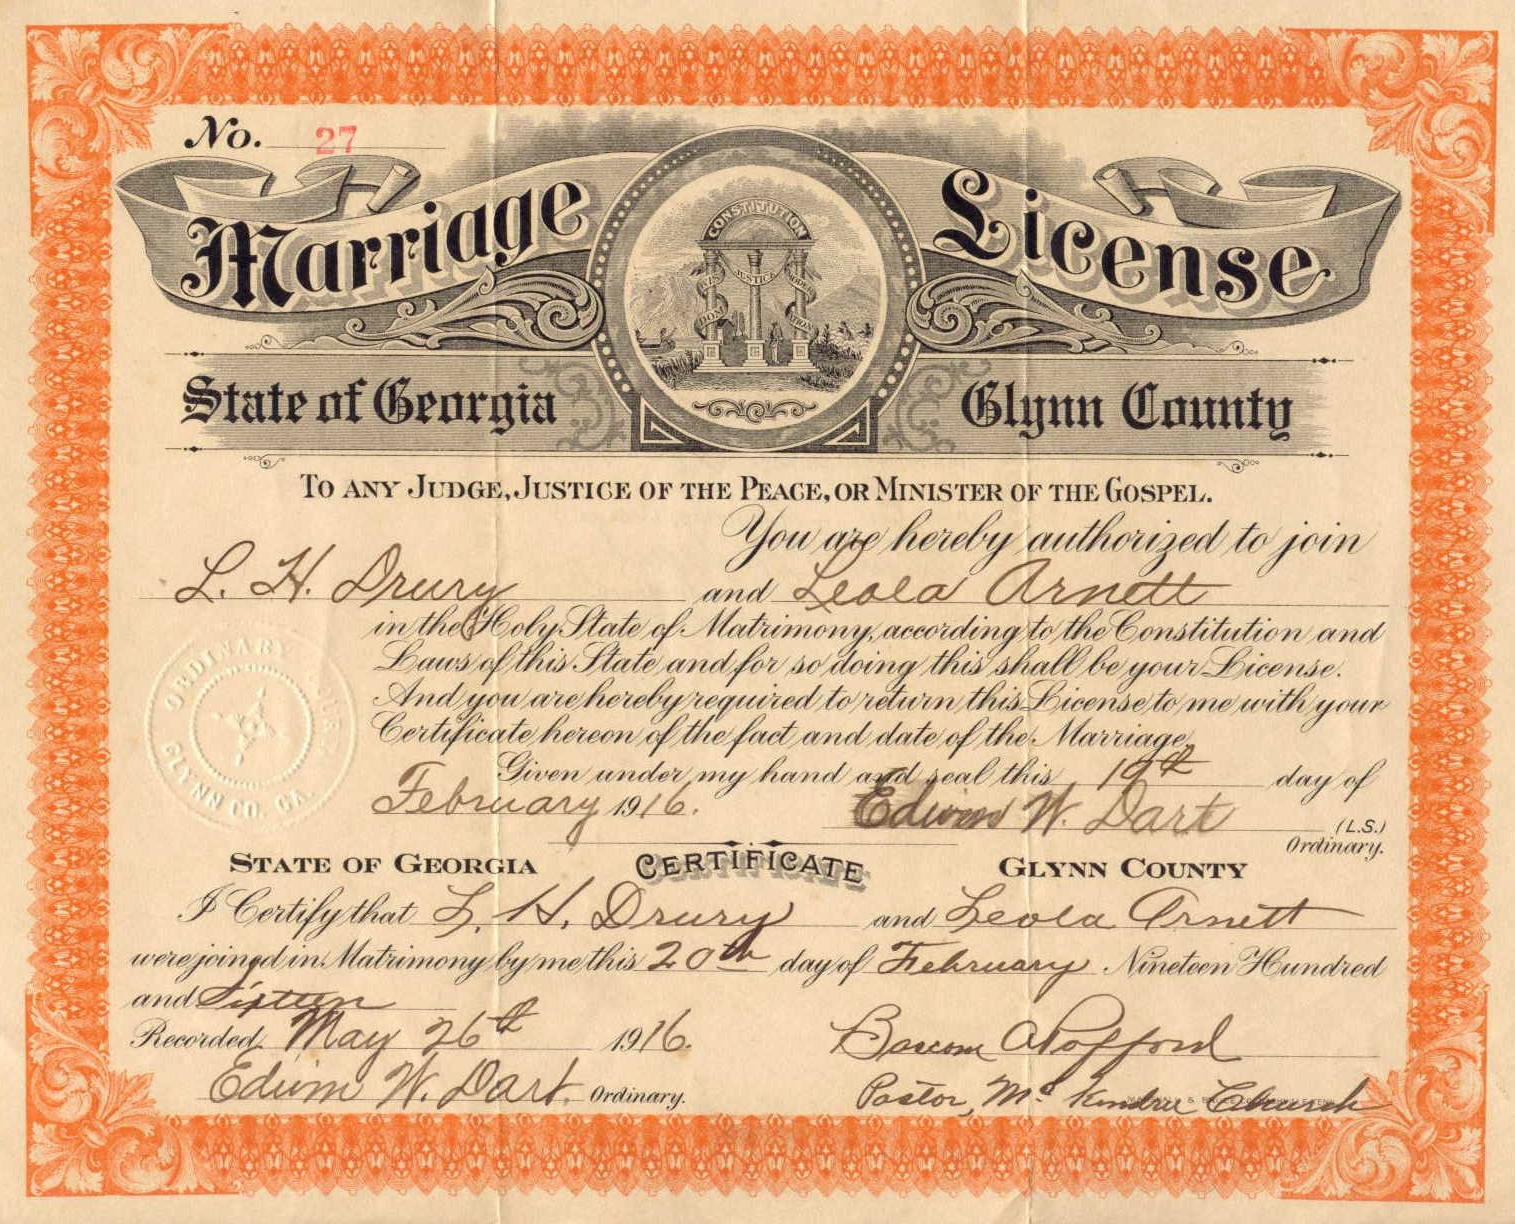 No. 27
Marriage License
CONSTITUTION
WISDOM JUSTICE MODERATION
State of Georgia Glynn County
TO ANY JUDGE, JUSTICE OF THE PEACE, OR MINISTER OF THE GOSPEL.
You are hereby authorized to join
L. H. Drury and Leola Arnett
in the Holy State of Matrimony, according to the Constitution and
Laws of this State and for so doing this shall be your License.
And you are hereby required to return this License to me with your
Certificate hereon of the fact and date of the Marriage.
Given under my hand and seal this 19th day of
February 1916. Edwin W. Dart (L.S.)
Ordinary.
ORDINARY COURT
GLYNN CO. GA.
STATE OF GEORGIA CERTIFICATE GLYNN COUNTY
I Certify that L. H. Drury and Leola Arnett
were joined in Matrimony by me this 20th day of February Nineteen Hundred
and Sixteen
Recorded May 26th 1916. Bascom
Edwin W. Dart. Ordinary. Pastor, McKendree Church